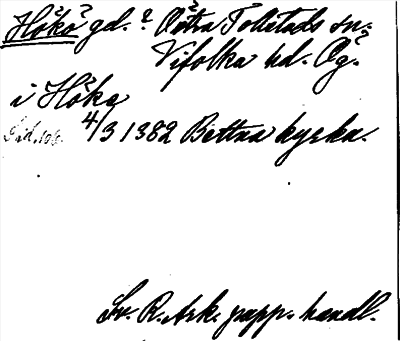 Hökö? gd. ? Östra Tollstads sn.
Vifolka hd. Ög.
i Höke
4/3 1382 Bettna kyrka.
Sv. R. Ark. papp. handl.